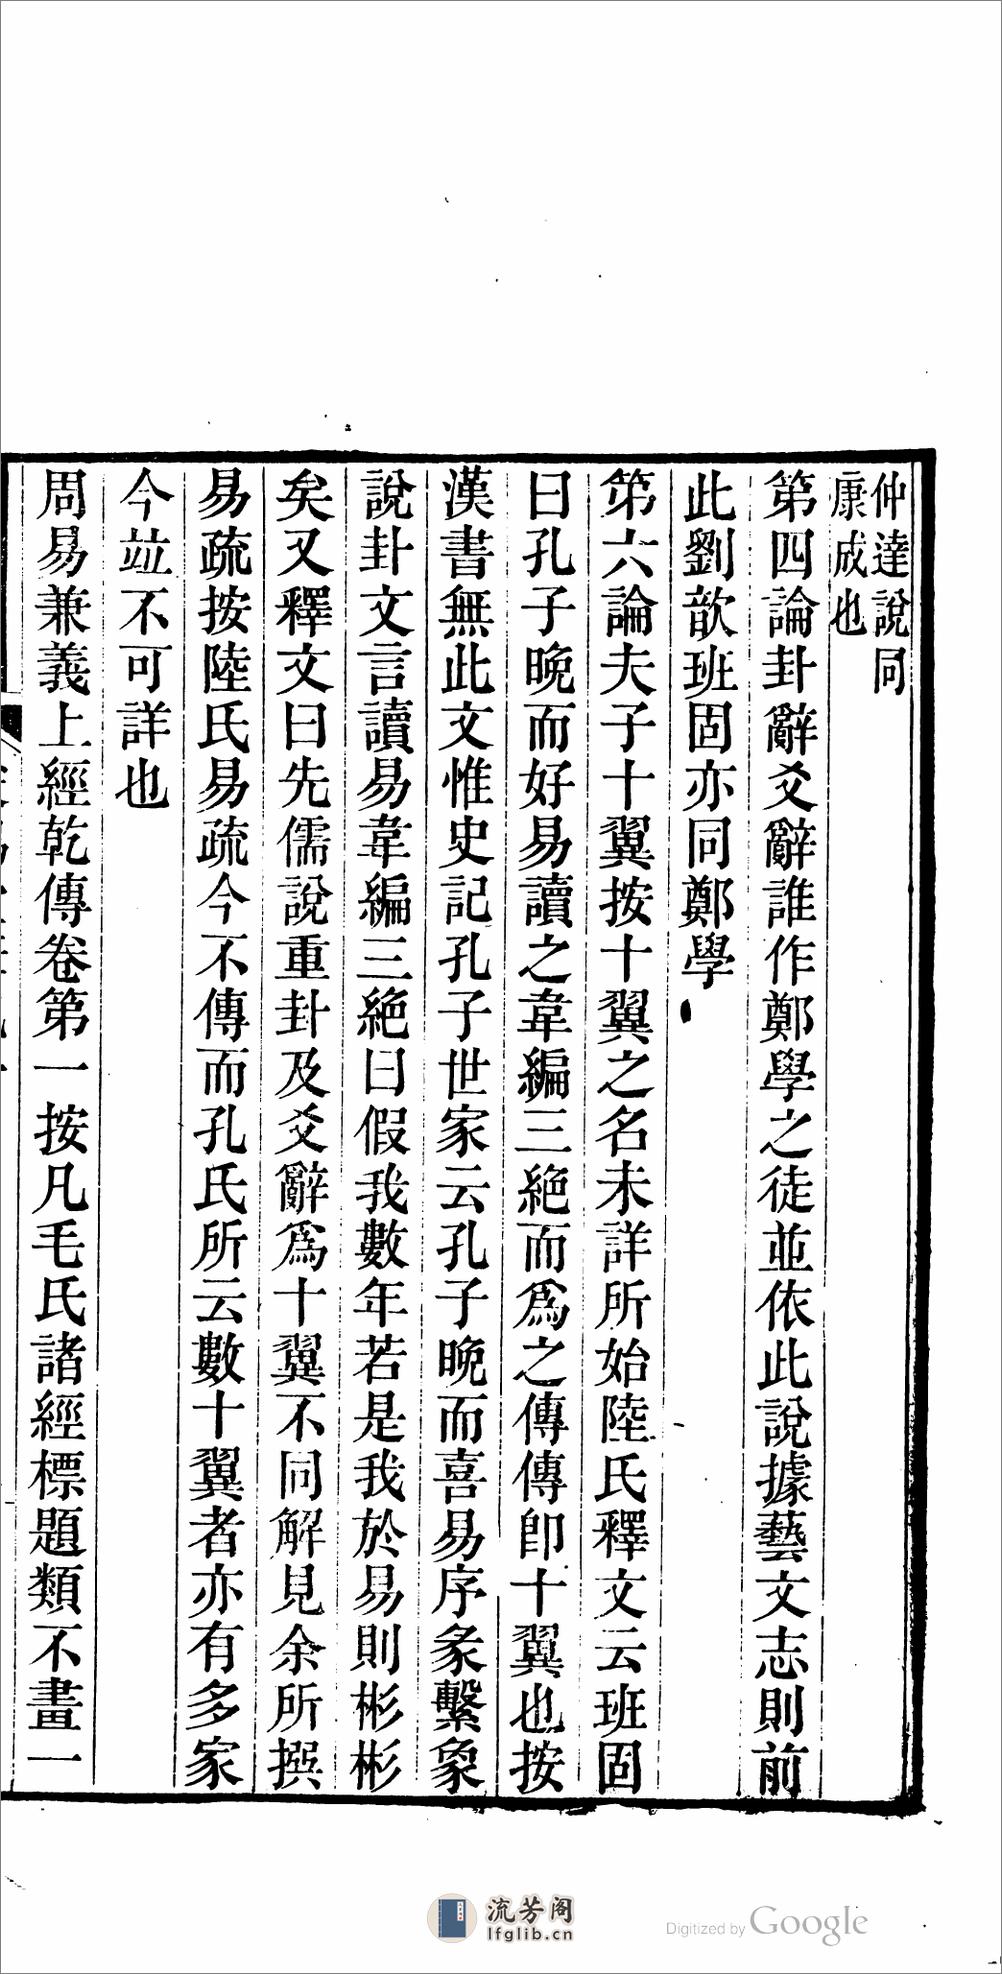 仲達說同
康成也
第四論卦辭爻辭誰作鄭學之徒並依此說據藝文志則前
此劉歆班固亦同鄭學
第六論夫子十翼按十翼之名未詳所始陸氏釋文云班固
曰孔子晚而好易讀之韋編三絕而爲之傳傳卽十翼也按
漢書無此文惟史記孔子世家云孔子晚而喜易序彖繫象
說卦文言讀易韋編三絕曰假我數年若是我於易則彬彬
矣又釋文曰先儒說重卦及爻辭爲十翼不同解見余所撰
易疏按陸氏易疏今不傳而孔氏所云數十翼者亦有多家
今竝不可詳也
周易兼義上經乾傳卷第一按凡毛氏諸經標題類不畫一
流芳阁
lfglib.cn
Digitized by Google